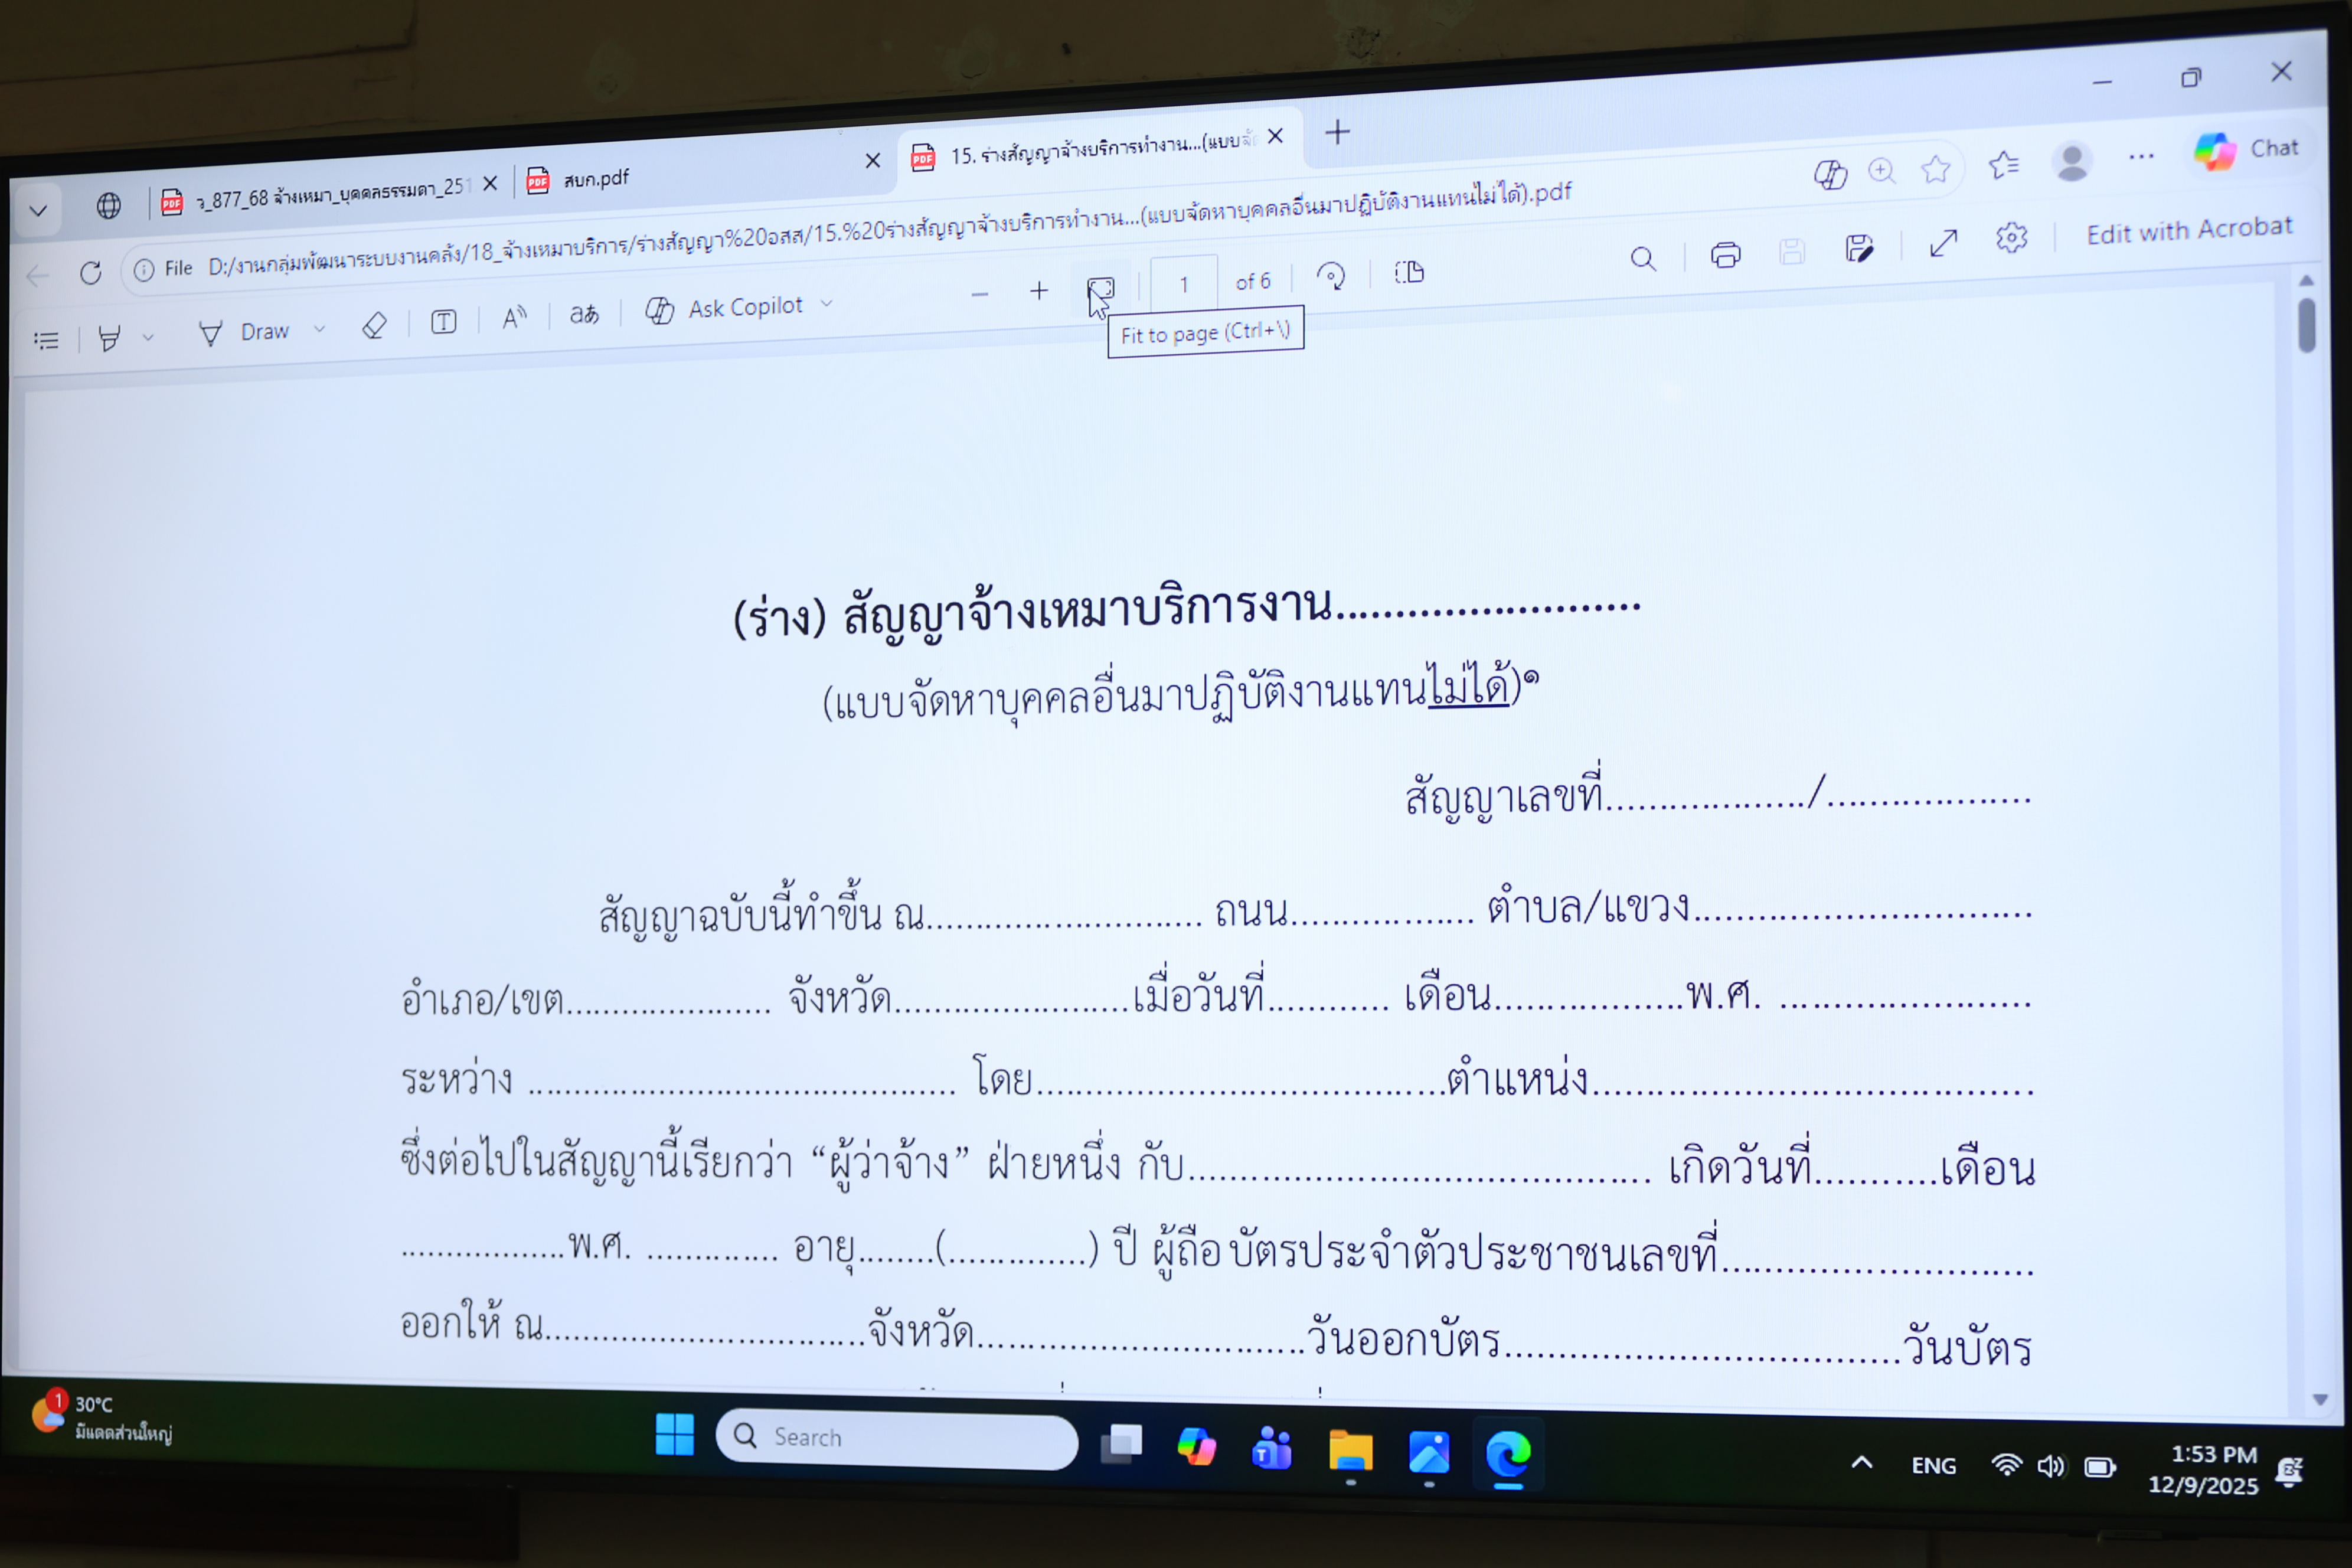 ว_877_68 จ้างเหมา_บุคคลธรรมดา_251
สบก.pdf
15. ร่างสัญญาจ้างบริการทำงาน...(แบบจัด
Chat
File D:/งานกลุ่มพัฒนาระบบงานคลัง/18_จ้างเหมาบริการ/ร่างสัญญา%20อสส/15.%20ร่างสัญญาจ้างบริการทำงาน...(แบบจัดหาบุคคลอื่นมาปฏิบัติงานแทนไม่ได้).pdf
Draw
aあ
Ask Copilot
1 of 6
Edit with Acrobat
Fit to page (Ctrl+\)
(ร่าง) สัญญาจ้างเหมาบริการงาน..........................
(แบบจัดหาบุคคลอื่นมาปฏิบัติงานแทนไม่ได้)๑
สัญญาเลขที่...................../.....................
สัญญาฉบับนี้ทำขึ้น ณ............................. ถนน................... ตำบล/แขวง...................................
อำเภอ/เขต...................... จังหวัด.........................เมื่อวันที่............. เดือน....................พ.ศ. ..........................
ระหว่าง .............................................. โดย............................................ตำแหน่ง...............................................
ซึ่งต่อไปในสัญญานี้เรียกว่า “ผู้ว่าจ้าง” ฝ่ายหนึ่ง กับ................................................. เกิดวันที่............เดือน
..................พ.ศ. .............. อายุ........(...............) ปี ผู้ถือบัตรประจำตัวประชาชนเลขที่.................................
ออกให้ ณ..................................จังหวัด...................................วันออกบัตร..........................................วันบัตร
1
30°C
มีแดดส่วนใหญ่
Search
ENG
1:53 PM
12/9/2025